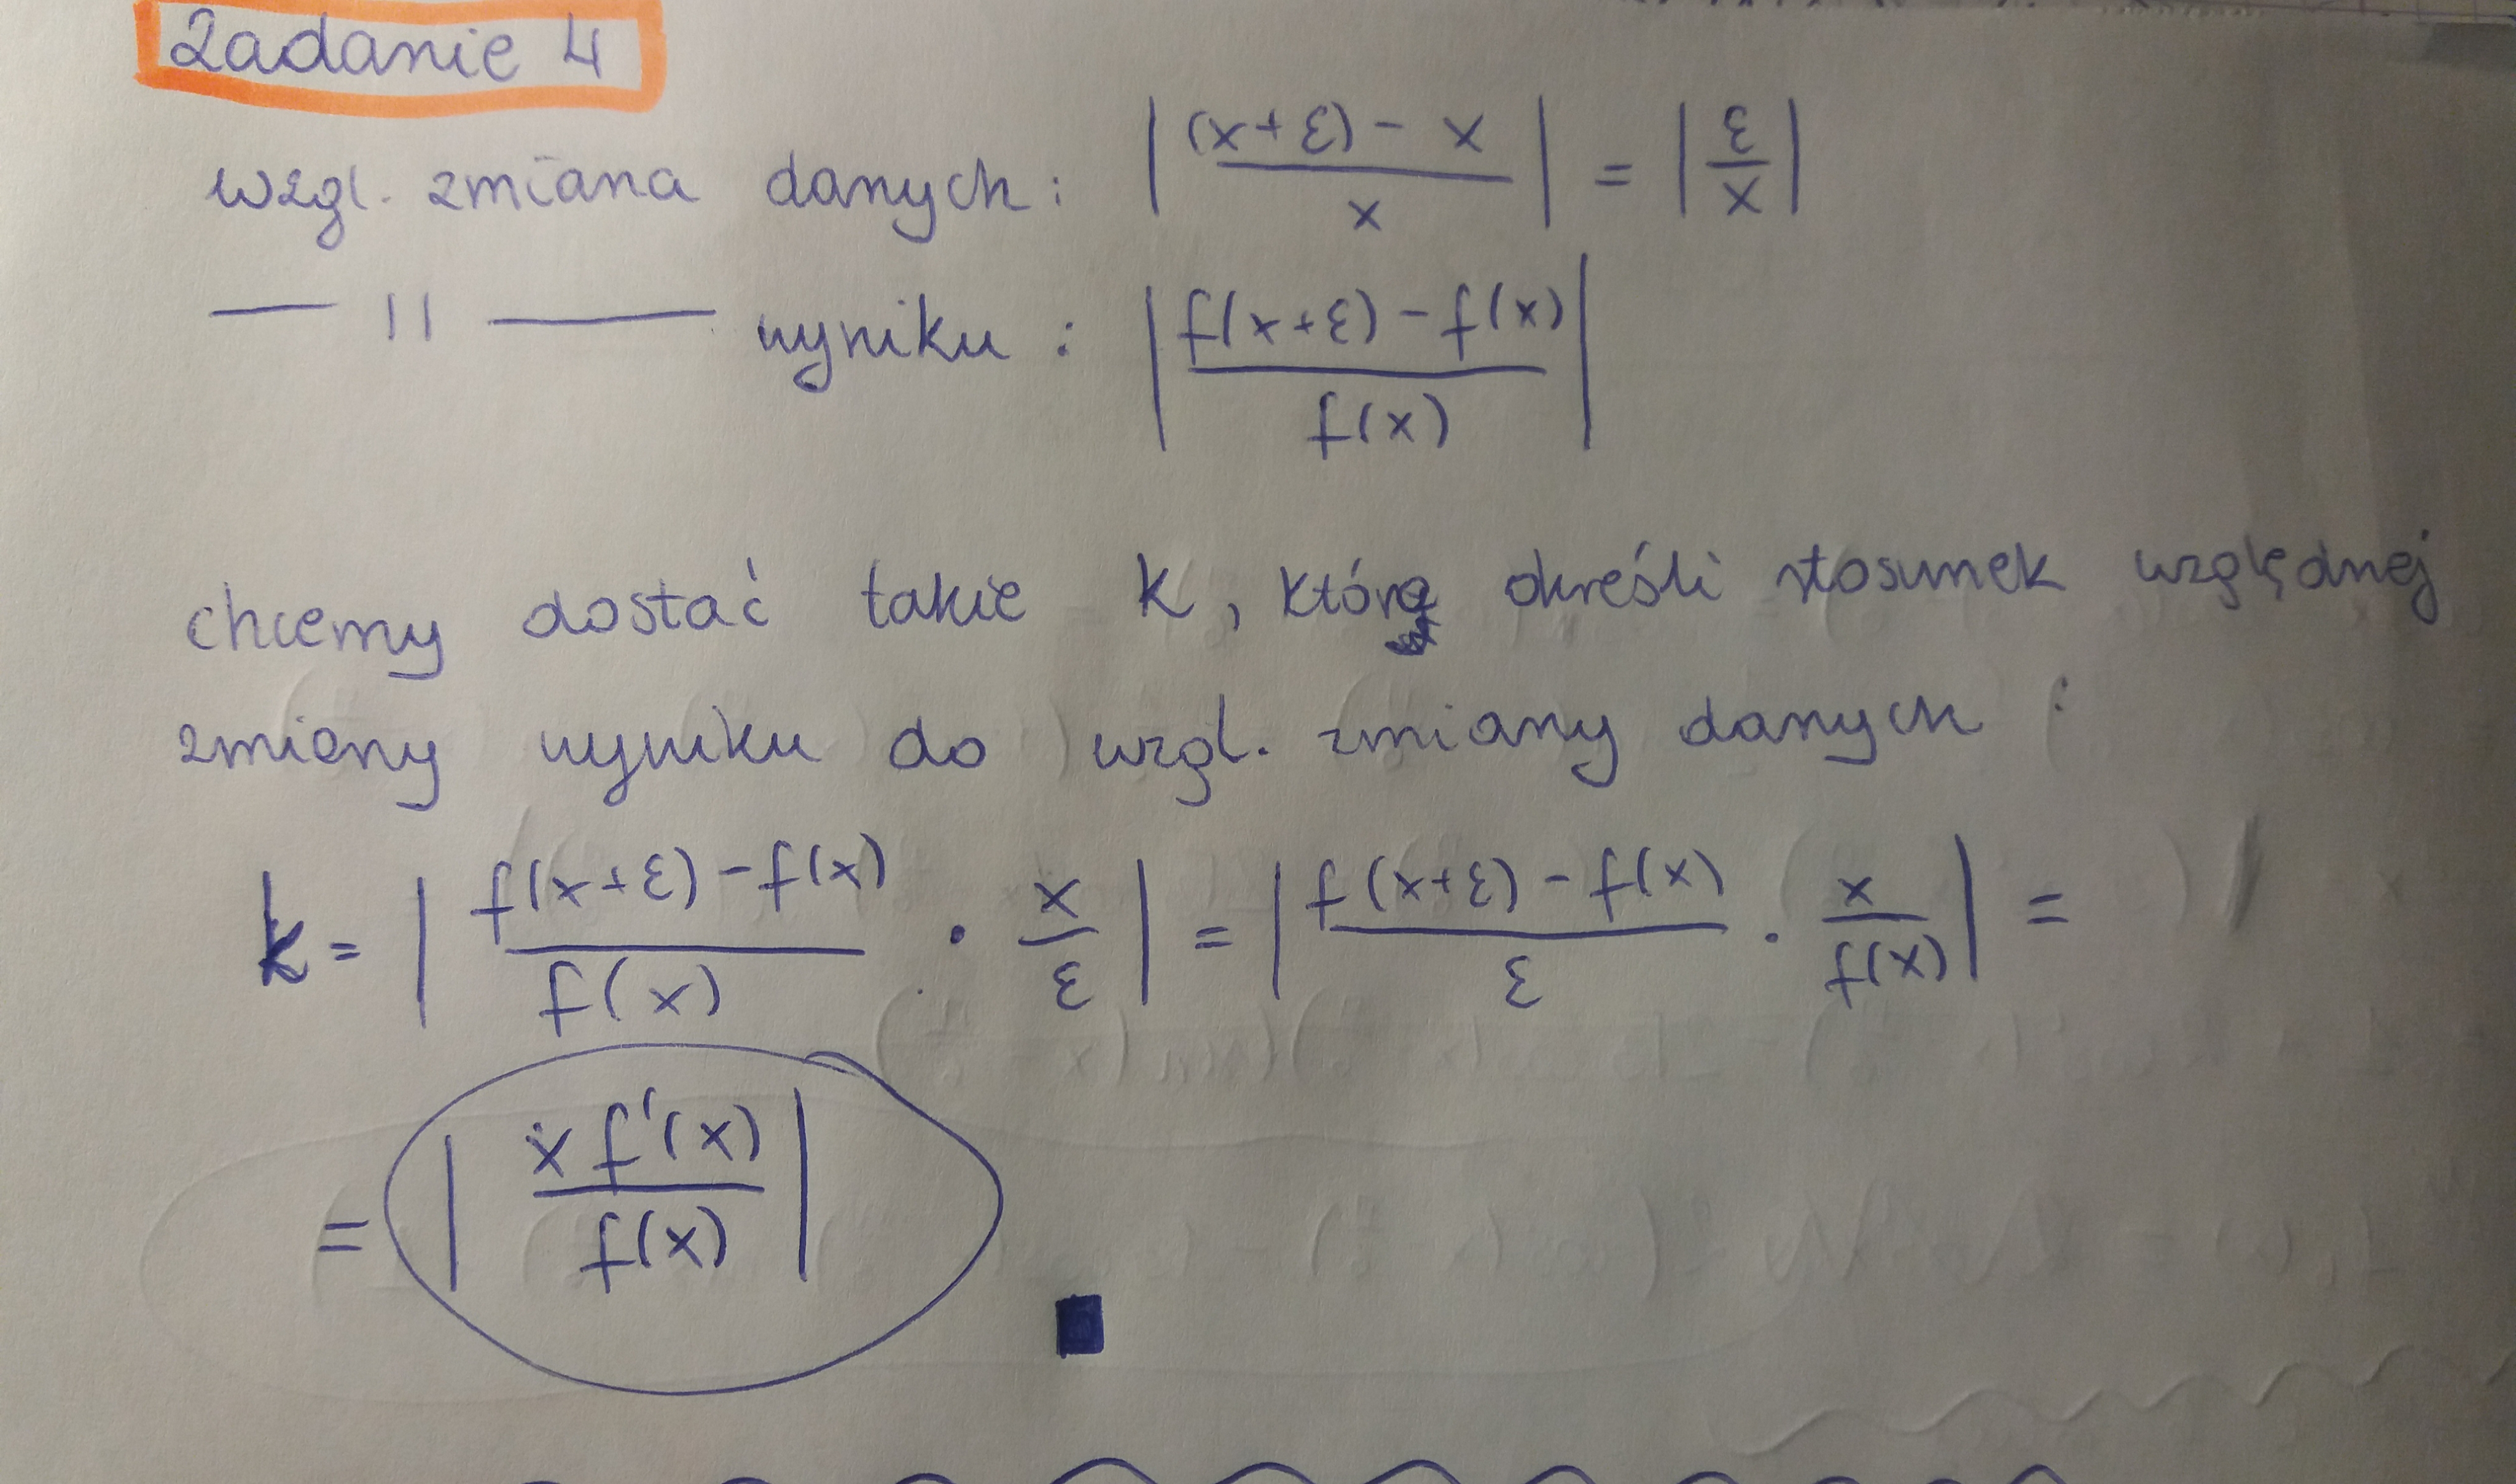 Zadanie 4
wzgl. zmiana danych: | ((x+ε) - x) / x | = | ε / x |
— 11 — wyniku : | (f(x+ε) - f(x)) / f(x) |
chcemy dostać takie k, które określi stosunek względnej
zmiany wyniku do wzgl. zmiany danych :
k = | (f(x+ε) - f(x)) / f(x) · x / ε | = | (f(x+ε) - f(x)) / ε · x / f(x) | =
= | x f'(x) / f(x) |